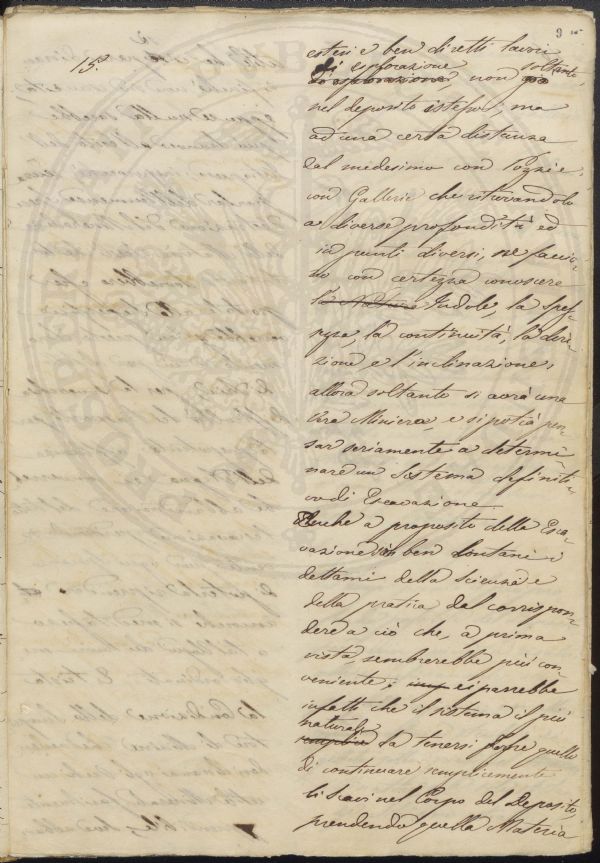 9
15.
esteri e ben diretti lavori
di esplorazione soltanto,
non già
nel deposito istesso, ma
ad una certa distanza
dal medesimo con Pozzi e
con Gallerie che ritrovandolo
a diverse profondità ed
in punti diversi, ne faccia-
no con certezza conoscere
la natura Indole, la spes-
sezza, la continuità, la dire-
zione e l'inclinazione,
allora soltanto si avrà una
vera Miniera, e si potrà pen-
sar seriamente a determi-
nare un Sistema definiti-
vo di Escavazione.
Perchè a proposito della Esca-
vazione ben lontani i
dettami della scienza e
della pratica dal corrispon-
dere a ciò che, a prima
vista, sembrerebbe più con-
veniente; ei parrebbe
infatti che il sistema il più
naturale
semplice da tenersi fosse quello
di continuare semplicemente
li scavi nel Corpo del Deposito,
prendendo quella Materia